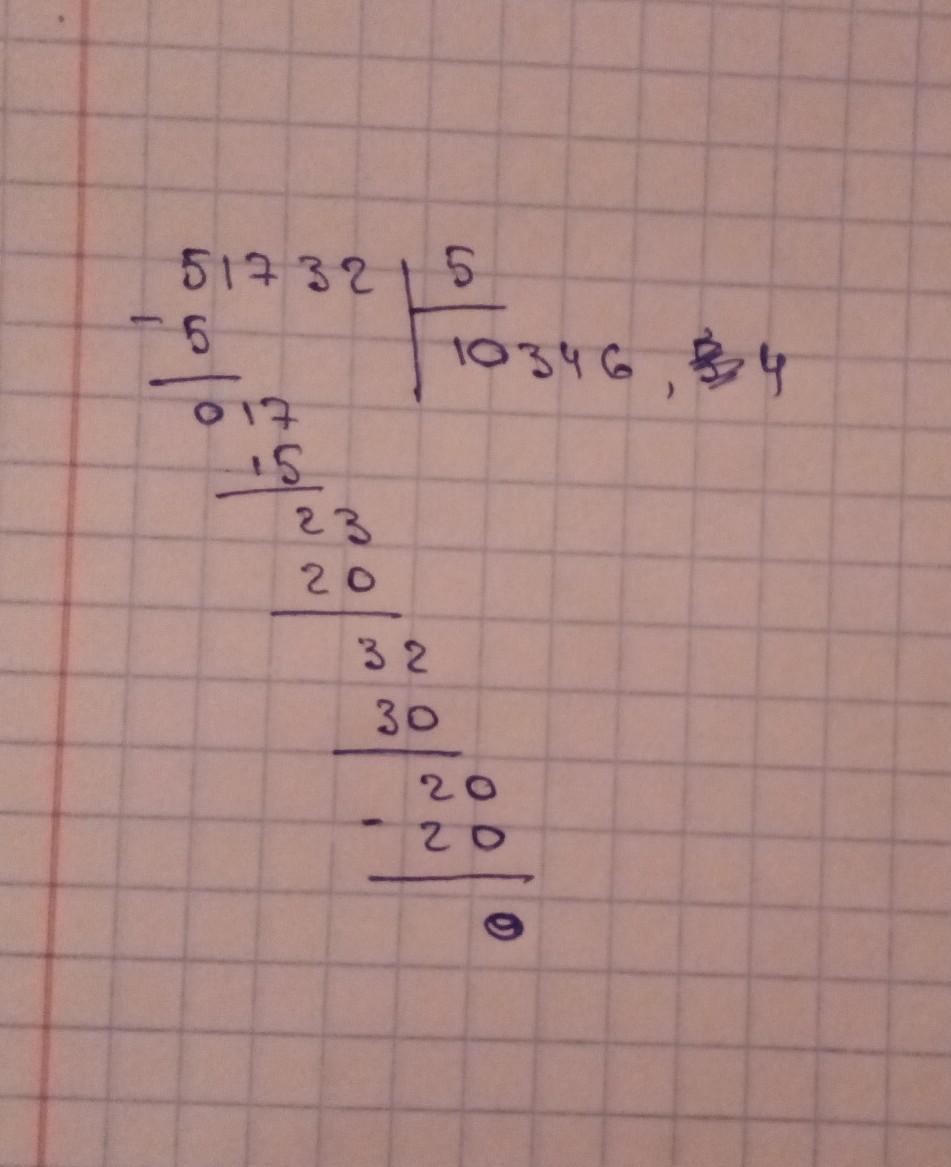 51732 5
- 5
10346, 4
017
15
23
20
32
30
20
- 20
0